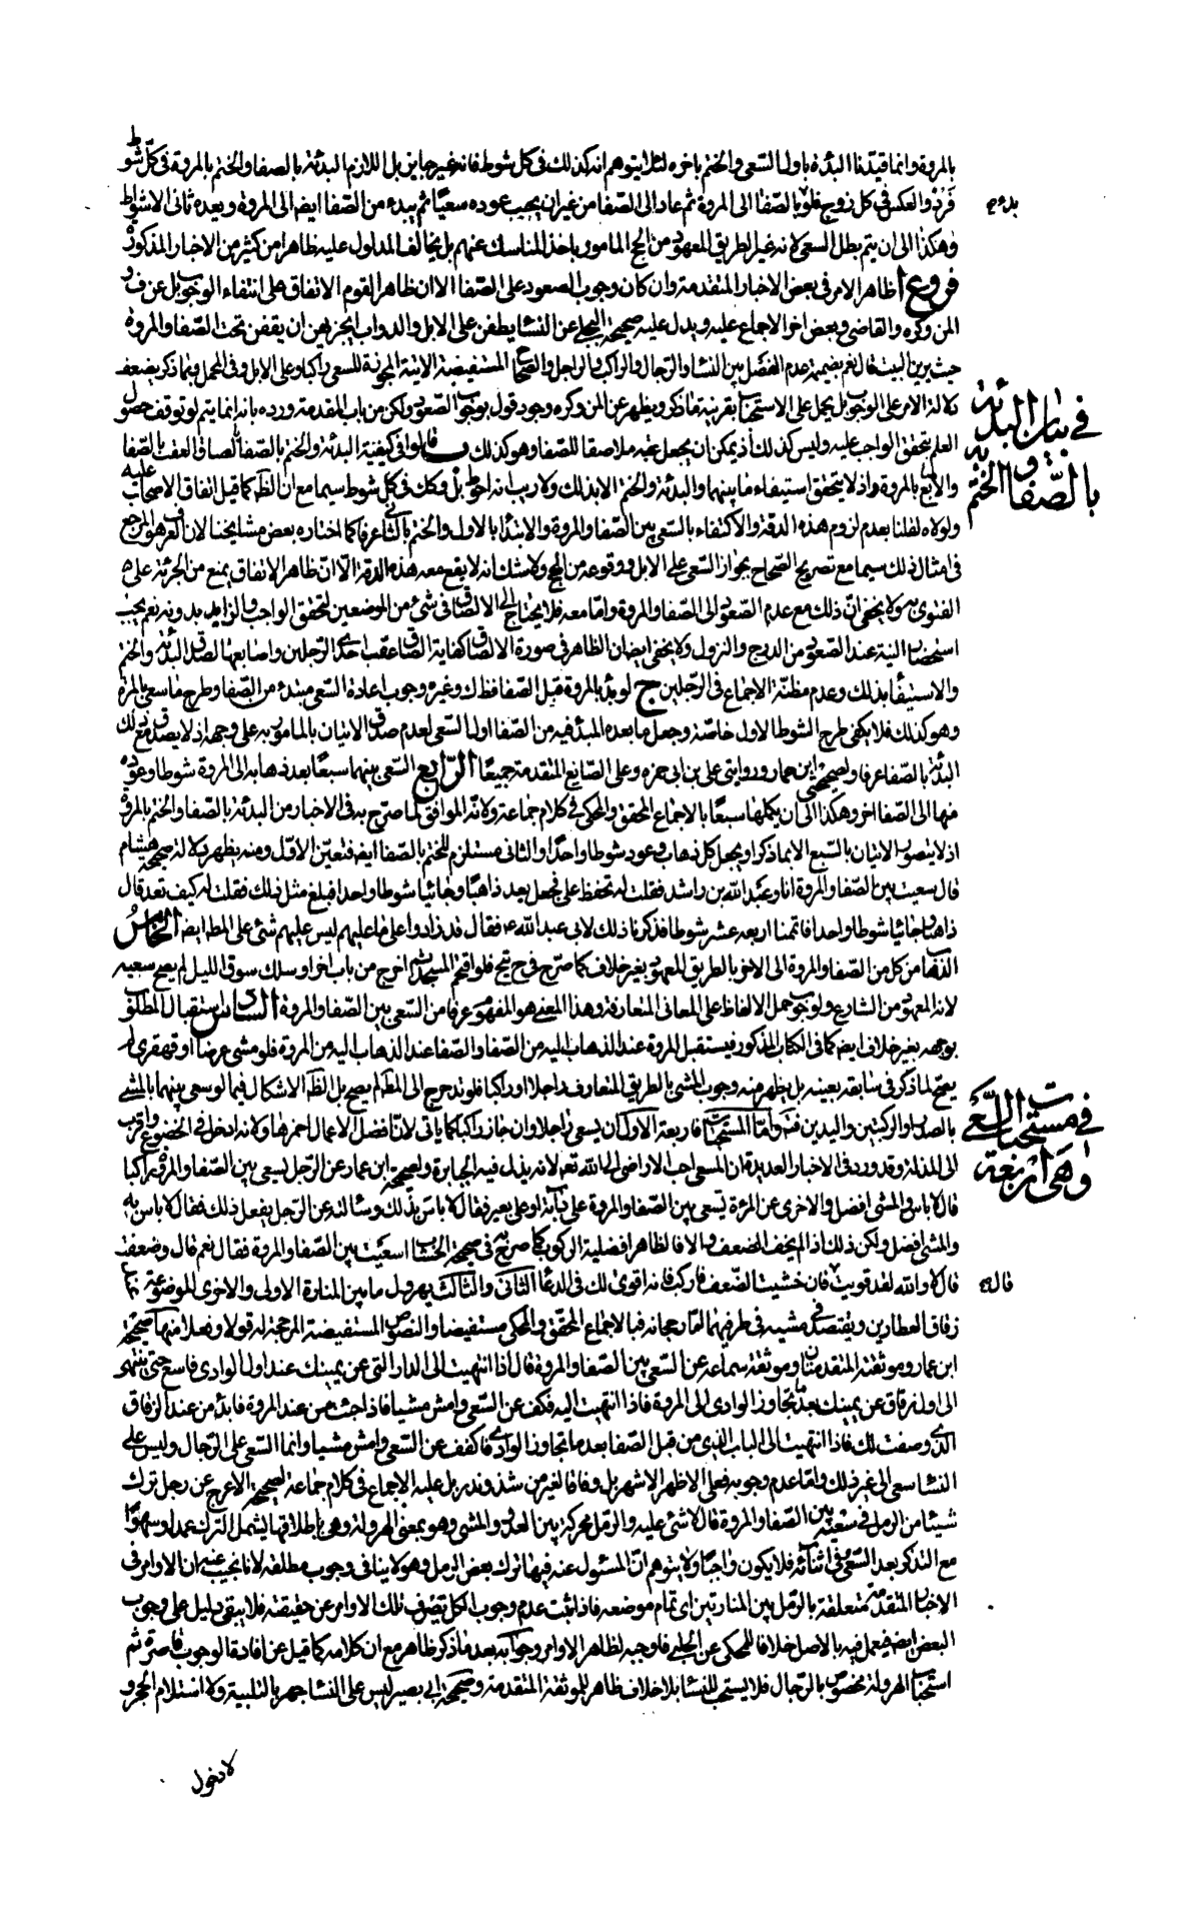 بالمروة وانما قيدنا البدئة باول السعى والختم باخره لئلا يتوهم انه كذلك فى كل شوط فانه غير جايز بل اللازم البدئة بالصفا والختم بالمروة فى كل شوط
فرد والعكس فى كل زوج فلو بالصفا الى المروة ثم عاد الى الصفا من غير ان يحسب عوده سعيا ثم يبدء من الصفا ايضا الى المروة ويعده ثانى الاشواط
بدء م
وهكذا الى ان يتم بطل السعى لانه غير الطريق المعهود من الحج المامور باخذ المناسك عنهم بل يخالف المدلول عليه ظاهرا من كثير من الاخبار المذكورة
فروع ا ظاهر الامر فى بعض الاخبار المتقدمة وان كان وجوب الصعود على الصفا الا ان ظاهر القوم الاتفاق على انتفاء الوجوب بل عن ف و
المن وكره والقاضى وبعض اخر الاجماع عليه ويدل عليه صحيحة البجلى عن النساء يطفن على الابل والدواب ايجزيهن ان يقفن تحت الصفا والمروة
حيث يرين البيت قال نعم بضميمة عدم الفصل بين النساء والرجال والراكب والراجل والصحاح المستفيضة الاتية المجوزة للسعى راكبا وعلى الابل وفى المحمل وبما ذكر يضعف
دلالة الامر على الوجوب بل يحمل على الاستحباب بقرينة ما ذكر ويظهر عن المن وكره وجود قول بوجوب الصعود ولكن من باب المقدمة ورده بانه انما يتم لو توقف حصول
فى بيان البدئة
بالصفا والختم به
العلم بتحقق الواجب عليه وليس كذلك اذ يمكن ان يجعل عقبه ملاصقا للصفا وهو كذلك ب قالوا فى كيفية البدئة والختم بالصفا الصاق العقب بالصفا
والاصابع بالمروة واذ لا يتحقق استيفاء ما بينهما والبدئة والختم الا بذلك ولا ريب انه احوط بل وكك فى كل شوط سيما مع ان الظ كما قيل اتفاق الاصحاب عليه
ولولاه لقلنا بعدم لزوم هذه الدقة والاكتفاء بالسعى بين الصفا والمروة والابتداء بالاول والختم بالثانى عرفا كما اختاره بعض مشايخنا لان العرف هو المرجع
فى امثال ذلك سيما مع تصريح الصحاح بجواز السعى على الابل ووقوعه من الحج ولا شك انه لا يقع معه هذه الدقة الا ان ظاهر الاتفاق يمنع من الجرئة على
الفتوى به ولا يخفى ان ذلك مع عدم الصعود الى الصفا والمروة واما معه فلا يحتاج الى الالصاق فى شىء من الموضعين لتحقق الواجب والزايد بدونه نعم يجب
استحضار النية عند الصعود من الدرج والنزول ولا يخفى ايضا ان الظاهر فى صورة الالصاق كفاية الصاق عقب احدى الرجلين واصابعها لصدق البدئة والختم
والاستيفاء بذلك وعدم مظنة الاجماع فى الرجلين ج لو بدء بالمروة قبل الصفا فظ ك وغيره وجوب اعادة السعى مبتدء من الصفا وطرح ما سعى بالمرة
وهو كذلك فلا يكفى طرح الشوط الاول خاصة وجعل ما بعده المبدء فيه من الصفا اول السعى لعدم صدق الاتيان بالمامور به على وجهه اذ لا يصدق مع ذلك
البدئة بالصفا عرفا ولصحيحتى ابن عمار وروايتى على بن ابى حمزه وعلى الصايغ المتقدمة جميعا الرابع السعى بينهما سبعا بعد ذهابه الى المروة شوطا وعوده
منها الى الصفا اخر وهكذا الى ان يكملها سبعا بالاجماع المحقق والمحكى فى كلام جماعة ولانه الموافق لما صرح به فى الاخبار من البدئة بالصفا والختم بالمروة
اذ لا يتصور الاتيان بالسبع الا بما ذكر او يجعل كل ذهاب وعود شوطا واحدا والثانى مستلزم للختم بالصفا ايضا فتعين الاول ومنه يظهر دلالة صحيحة هشام
قال سعيت بين الصفا والمروة انا وعبد الله بن راشد فقلت له تحفظ على فجعل يعد ذاهبا وجائيا شوطا واحدا فبلغ مثل ذلك فقلت له كيف تعد قال
ذاهبا وجائيا شوطا واحدا فاتممنا اربعة عشر شوطا فذكرنا ذلك لابى عبد الله ع فقال قد زادوا على ما عليهم ليس عليهم شئ على المط ايضا الخامس
الذهاب من كل من الصفا والمروة الى الاخر بالطريق المعهود بغير خلاف كما صرح فى ح يح فلو اقتحم المسجد ثم اخرج من باب اخر او سلك سوق الليل لم يصح سعيه
لانه المعهود من الشارع ولوجوب حمل الالفاظ على المعانى المتعارفة وهذا المعنى هو المفهوم عرفا من السعى بين الصفا والمروة السادس استقبال المطلوب
بوجهه بغير خلاف ايضا كما فى الكتاب المذكور فيستقبل المروة عند الذهاب اليه من الصفا والصفا عند الذهاب اليه من المروة فلو مشى عرضا او قهقرى لم
يصح لما ذكر فى سابقه بعينه بل يظهر منه وجوب المشى بالطريق المتعارف راجلا او راكبا فلو تدحرج الى المط لم يصح بل الظ الاشكال فيما لو سعى بينهما بالمشى
فى مستحبات السعى
وهى اربعة
بالصدر او الركبتين واليدين فتم واما المستحبات فاربعة الاول ان يسعى راجلا وان جاز راكبا كما ياتى لان افضل الاعمال احمزها ولانه ادخل فى الخضوع واقرب
الى المذلة وقد ورد فى الاخبار العديدة ان المسعى احب الاراضى الى الله تعم لانه يذل فيه الجبابرة ولصحيحة ابن عمار عن الرجل يسعى بين الصفا والمروة راكبا
قال لا باس والمشى افضل والاخرى عن المرئة تسعى بين الصفا والمروة على دابة او على بعير فقال لا باس بذلك وسالته عن الرجل يفعل ذلك فقال لا باس به
والمشى افضل ولكن ذلك اذا لم يخف الضعف والا فالظاهر افضلية الركوب كما صرح به فى صحيحة الخشاب اسعيت بين الصفا والمروة فقال نعم قال وضعفت
قال لا والله لقد قويت فان خشيت الضعف فاركب فانه اقوى لك فى الدعا الثانى والثالث يهرول ما بين المنارة الاولى والاخرى الموضوعة بباب
قال م
زقاق العطارين ويقتصد فى مشيه فى طرفيهما اما رجحانه فبالاجماع المحقق والمحكى مستفيضا والنصوص المستفيضة المرجحة له قولا وفعلا منها صحيحة
ابن عمار وموثقته المتقدمتان وموثقة سماعة عن السعى بين الصفا والمروة قال اذا انتهيت الى الدار التى عن يمينك عند اول الوادى فاسع حتى تنتهى
الى اول زقاق عن يمينك بعد ما تجاوز الوادى الى المروة فاذا انتهيت اليه فكف عن السعى وامش مشيا فاذا جئت من عند المروة فابدء من عند الزقاق
الذى وصفت لك فاذا انتهيت الى الباب الذى من قبل الصفا بعد ما تجاوز الوادى فاكفف عن السعى وامش مشيا وانما السعى على الرجال وليس على
النساء سعى الى غير ذلك واما عدم وجوبه فعلى الاظهر الاشهر بل وفاقا لغير من شذ وندر بل عليه الاجماع فى كلام جماعة لصحيحة الاعرج عن رجل ترك
شيئا من الرمل فى سعيه بين الصفا والمروة قال لا شئ عليه والرمل محركة بين العدو والمشى وهو بمعنى الهرولة وهى باطلاقها يشمل الترك عمدا وسهوا
مع التذكر بعد السعى وفى اثنائه فلا يكون واجبا ولا يتوهم ان المسئول عنه فيها ترك بعض الرمل وهو لا ينافى وجوب مطلقه لانا نجيب عنه ان الاوامر فى
الاخبار المتقدمة متعلقة بالرمل بين المنارتين اى تمام موضعه فاذا ثبت عدم وجوب الكل تصرف تلك الاوامر عن حقيقته فلا يبقى دليل على وجوب
البعض ايضا فيعمل فيه بالاصل خلافا للمحكى عن الحلبى فاوجبه لظاهر الاوامر وجوابه بعد ما ذكر ظاهر مع ان كلامه كما قيل عن افادة الوجوب قاصرة ثم
استحباب الهرولة مخصوص بالرجال فلا يستحب للنساء بلا خلاف ظاهر للموثقة المتقدمة وصحيحة ابى بصير ليس على النساء جهر بالتلبية ولا استلام الحجر و
لا دخول